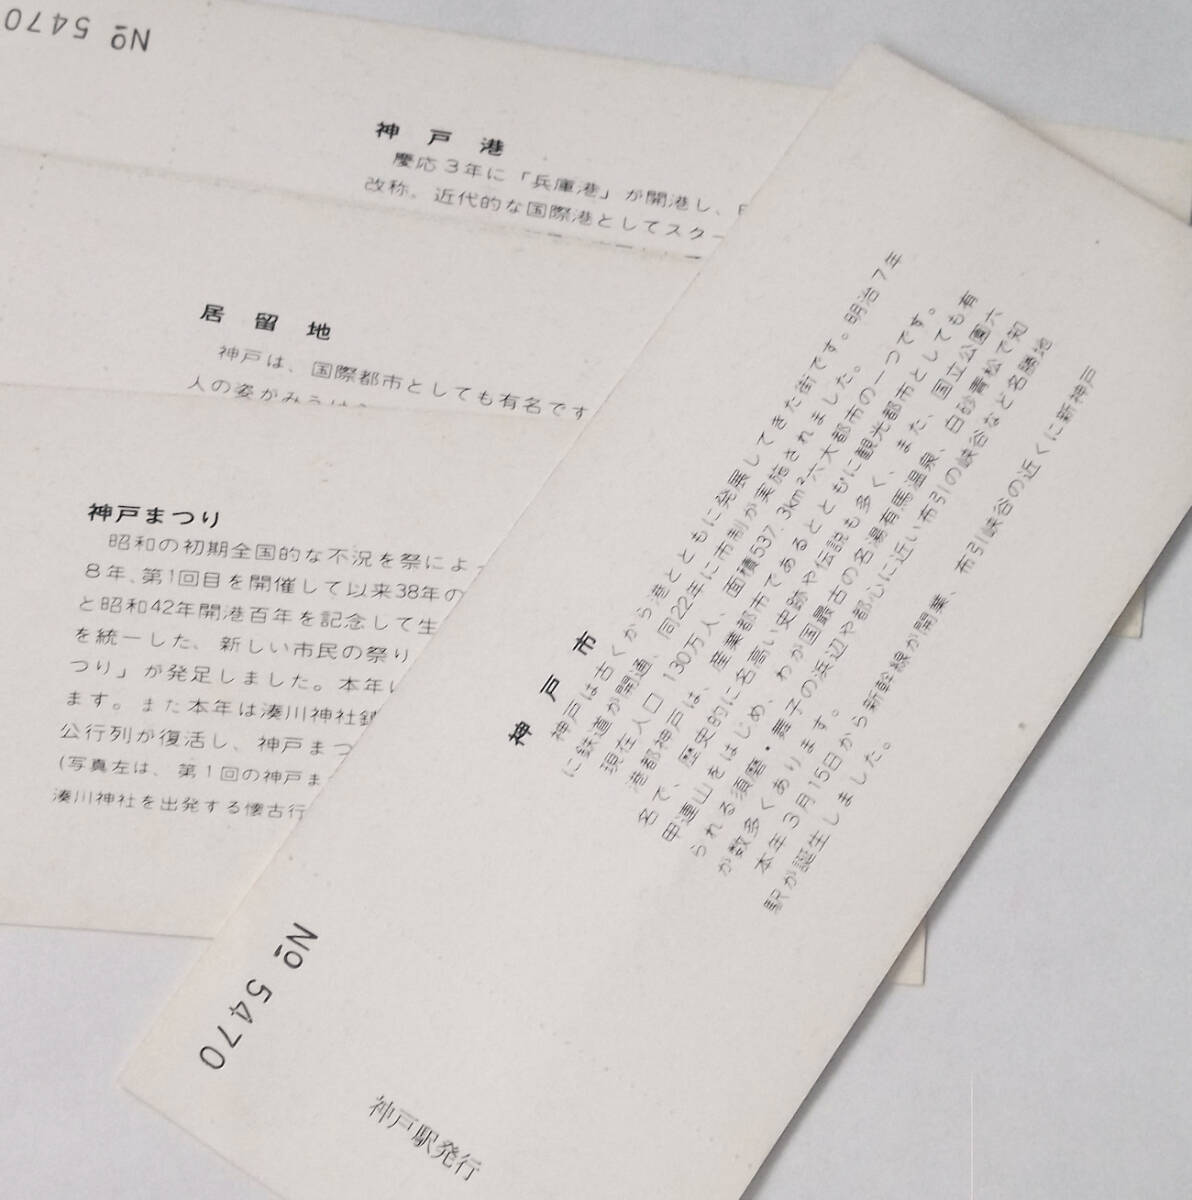 № 5470
神戸港
慶応3年に「兵庫港」が開港し、
改称。近代的な国際港としてスター
居留地
神戸は、国際都市としても有名です
人の姿がみうけ
神戸まつり
昭和の初期全国的な不況を祭によっ
8年、第1回目を開催して以来38年の
と昭和42年開港百年を記念して生
を統一した、新しい市民の祭り
つり」が発足しました。本年い
ます。また本年は湊川神社鎮
公行列が復活し、神戸まつ
(写真左は、第1回の神戸ま
湊川神社を出発する懐古行
神戸市
神戸は古くから港とともに発展してきた街です。明治7年
に鉄道が開通、同22年に市制が実施されました。
現在人口130万人、面積537.3km²六大都市の一つです。
港都神戸は、産業都市であるとともに観光都市としても有
名で、歴史的に名高い史跡や伝説も多く、また、国立公園六
甲連山をはじめ、わが国最古の名湯有馬温泉、白砂青松で知
られる須磨・舞子の浜辺や都心に近い布引の峡谷など名勝地
が数多くあります。
本年3月15日から新幹線が開業、布引峡谷の近くに新神戸
駅が誕生しました。
№ 5470
神戸駅発行